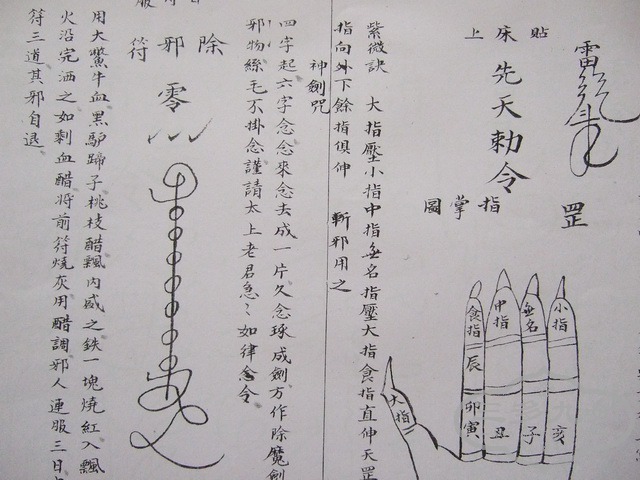 貼床上
先天勅令
罡
指掌圖
食指
中指
無名
小指
大指
辰
卯
寅
丑
子
亥
紫微訣　大指壓小指中指無名指壓大指食指直伸天罡
指向外下餘指俱伸　斬邪用之
神劍咒
四字起六字念念來念去成一片久念琢成劍方作除魔劍
邪物絲毛不掛念謹請太上老君急〻如律令
除邪符
零
用大鱉牛血黑驢蹄子桃枝醋瓢內盛之鉄一塊燒紅入瓢
火沿完洒之如剩血醋將前符燒灰用醋調邪人連服三日
符三道其邪自退